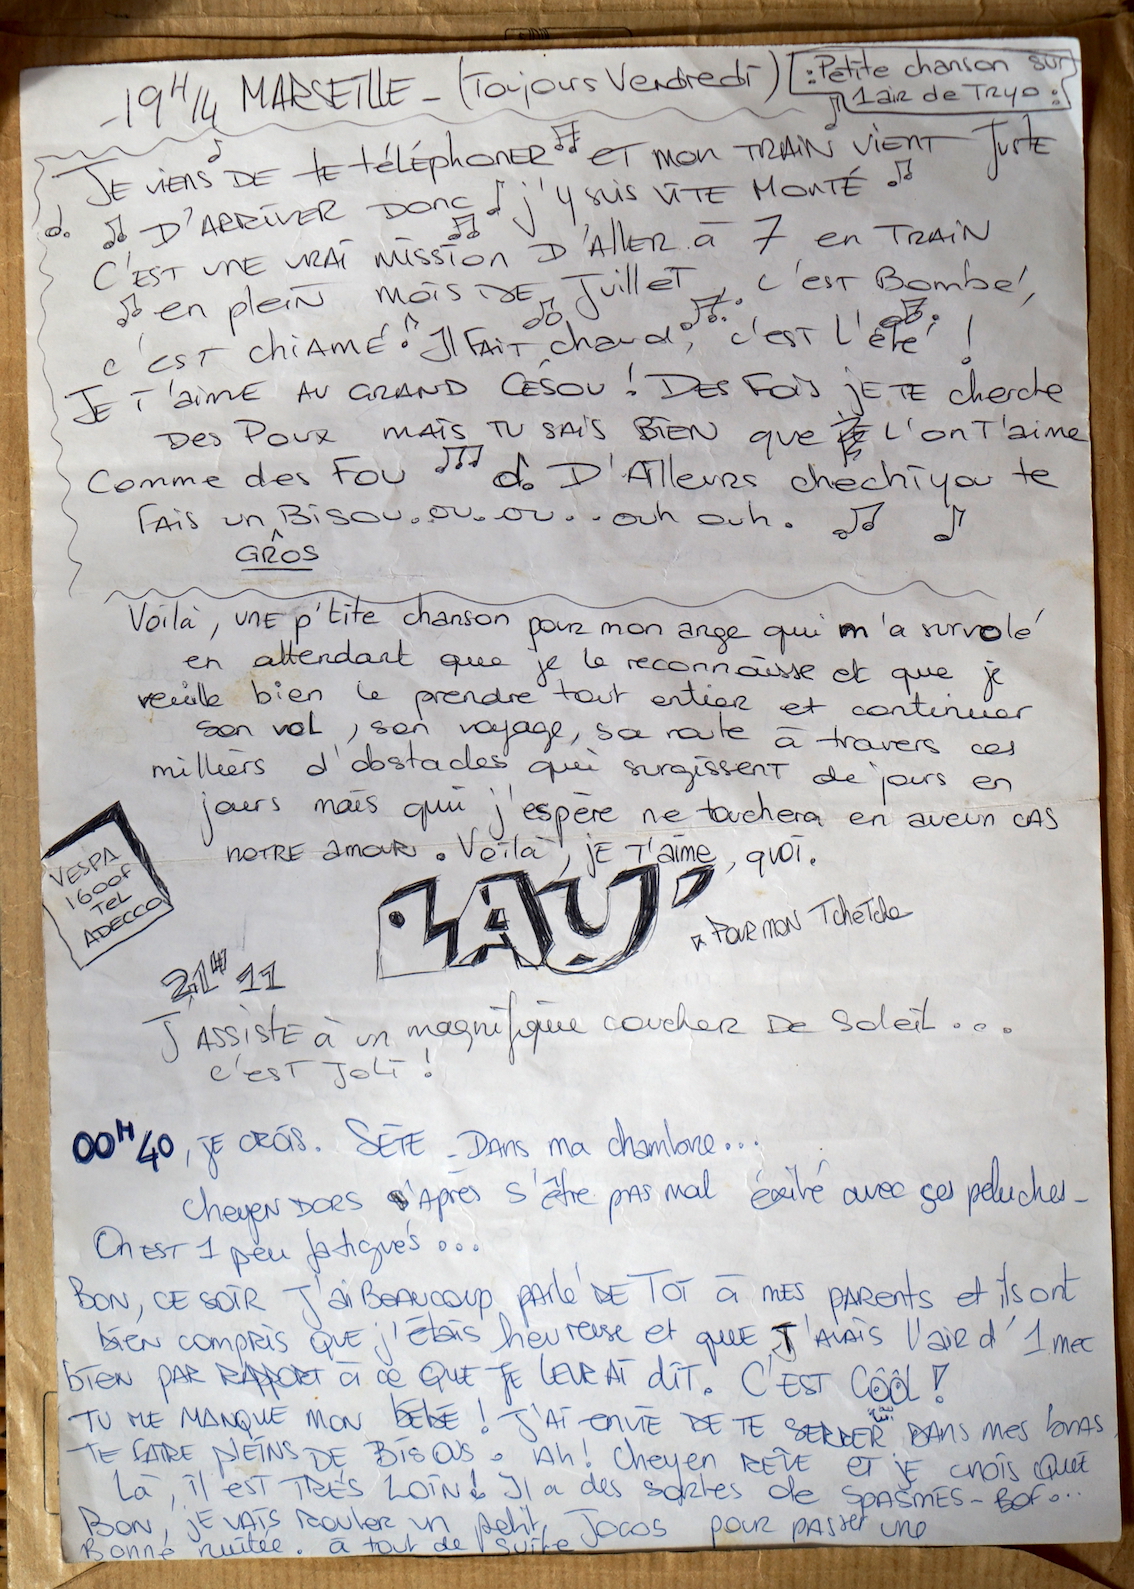 - 19H14 MARSEILLE - (Toujours Vendredi)
: Petite chanson sur
1 air de Tryo :
JE VIENS DE te téléphoner et mon TRAIN VIENT Juste
D'ARRIVER DONC j'y suis VITE MONTÉ
C'EST UNE VRAI MISSION D'ALLER à 7 en TRAIN
en plein mois DE Juillet, c'est Bombé,
c'est chiamé! Il FAIT chaud, c'est L'été !
JE T'aime AU GRAND CÉSOU ! DES FOIS JE TE cherche
Des Poux mais TU SAIS BIEN que L'ON T'aime
Comme des Fou D'Ailleurs chechiyou te
FAIS un BISOU.OU.OU... ouh ouh.
GROS
Voilà, UNE p'tite chanson pour mon ange qui m'a survolé
en attendant que je le reconnaisse et que je
veuille bien le prendre tout entier et continuer
son vol, son voyage, sa route à travers ces
milliers d'obstacles qui surgissent de jours en
jours mais qui j'espère ne touchera en aucun CAS
NOTRE amour. Voilà, JE T'aime, quoi.
VESPA
1600F
Tel
ADECCO
LAU
POUR MON TcheTche
21H11
J'ASSISTE à un magnifique coucher DE Soleil...
c'EST JOLI !
00H40, JE CROIS. SÈTE - Dans ma chambre...
Cheyen DORS d'Après s'être pas mal éxité avec ses peluches -
On EST 1 peu fatigués...
BON, CE SOIR J'ai BEAUCOUP parlé DE TOI à MES PARENTS et ils ont
bien compris QUE j'étais heureuse et que T'AVAIS l'air d'1 mec
bien PAR RAPPORT à ce QUE JE LEUR AI dit. C'EST CÔÔL !
TU ME MANQUE MON BÉBÉ ! J'AI ENVIE DE TE SERRER DANS mes bras,
TE FAIRE PLEINS DE BISOUS. Ah ! Cheyen RÊVE et je crois QUE
Là, il EST TRÈS LOIN ! Il a des sortes de SPASMES - BOF...
BON, JE VAIS rouler un petit Jocos pour passer UNE
Bonne nuitée. à tout de suite